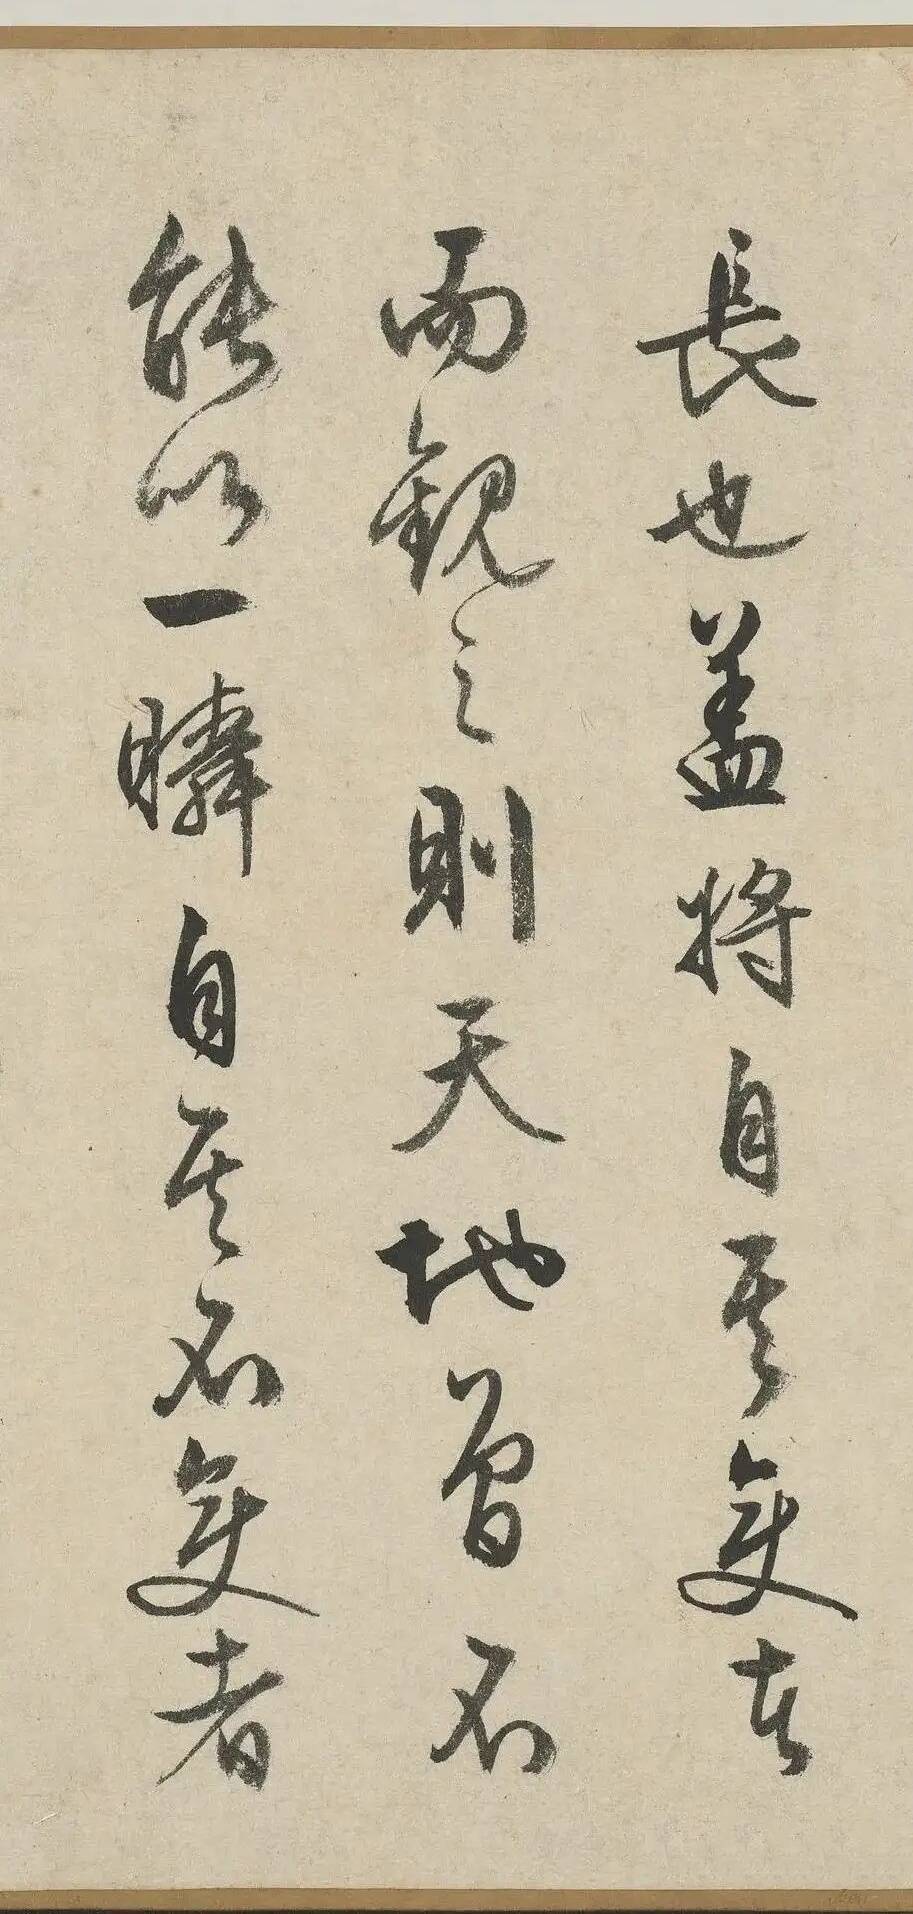 長也盖將自其變者
而觀之則天地曾不
能以一瞬自其不變者